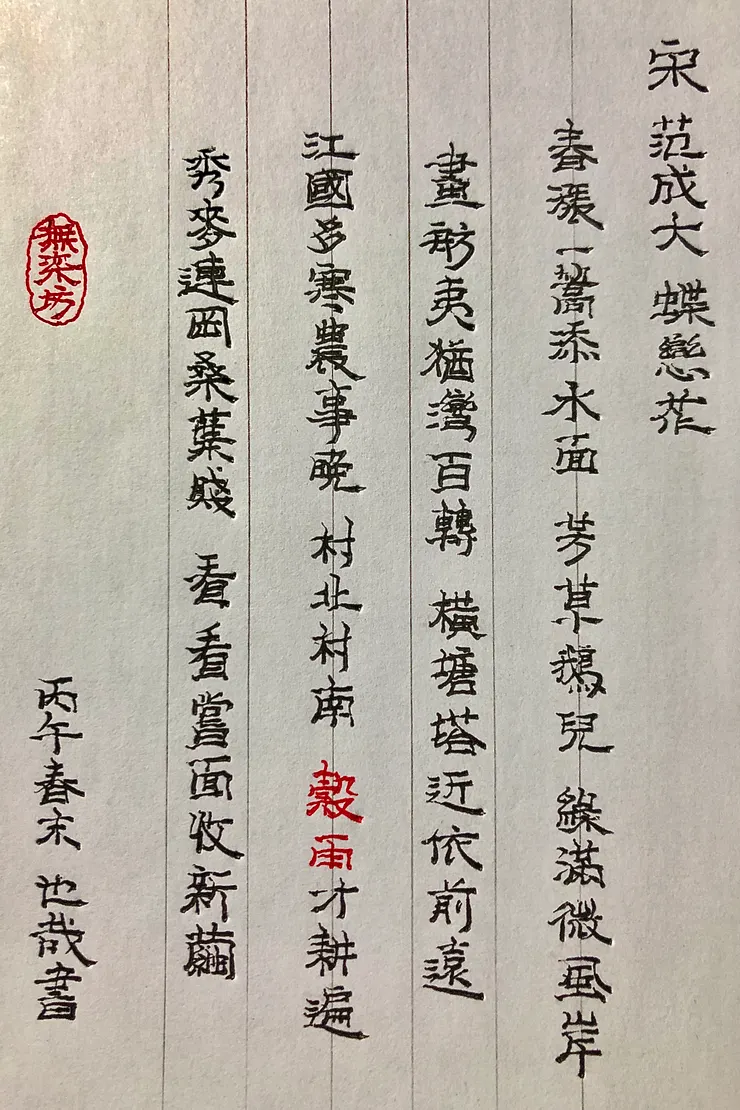 宋 范成大 蝶戀花
春漲一篙添水面 芳草鵝兒 綠滿微風岸
畫舫夷猶灣百轉 橫塘塔近依前遠
江國多寒農事晚 村北村南 穀雨才耕遍
秀麥連岡桑葉賤 看看嘗面收新繭
丙午春末 也哉書